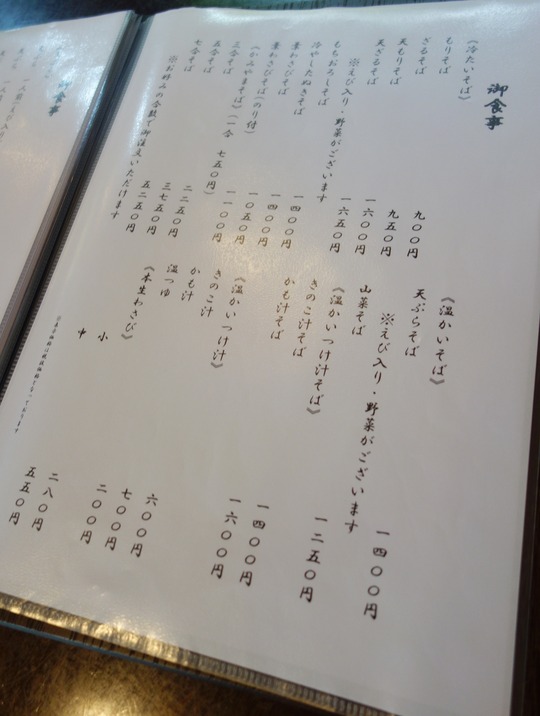 御食事
《冷たいそば》
もりそば 九〇〇円
ざるそば 九五〇円
天もりそば 一六〇〇円
天ざるそば 一六五〇円
※えび入り・野菜がございます
もちおろしそば 一四〇〇円
冷やしたぬきそば 一四〇〇円
葉わさびそば 一〇五〇円
葉わさびそば(のり付) 一一〇〇円
《かみやまそば》(一合 七五〇円)
三合そば 二二五〇円
五合そば 三七五〇円
七合そば 五二五〇円
※お好みの合数で御注文いただけます
《温かいそば》
天ぷらそば 一四〇〇円
※えび入り・野菜がございます
山菜そば 一二五〇円
《温かいつけ汁そば》
きのこ汁そば 一四〇〇円
かも汁そば 一六〇〇円
《温かいつけ汁》
きのこ汁 六〇〇円
かも汁 七〇〇円
温つゆ 二〇〇円
《本生わさび》
小 二八〇円
中 五五〇円
御食事